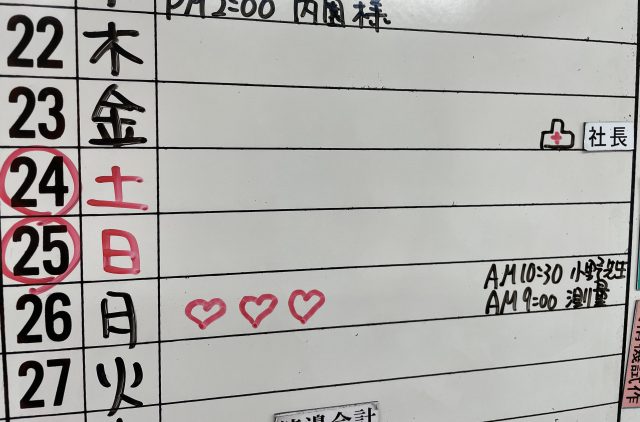 PM2:00 内園様
22 木
23 金
社長
24 土
25 日
AM10:30 小野先生
26 日
AM9:00 測量
27 火